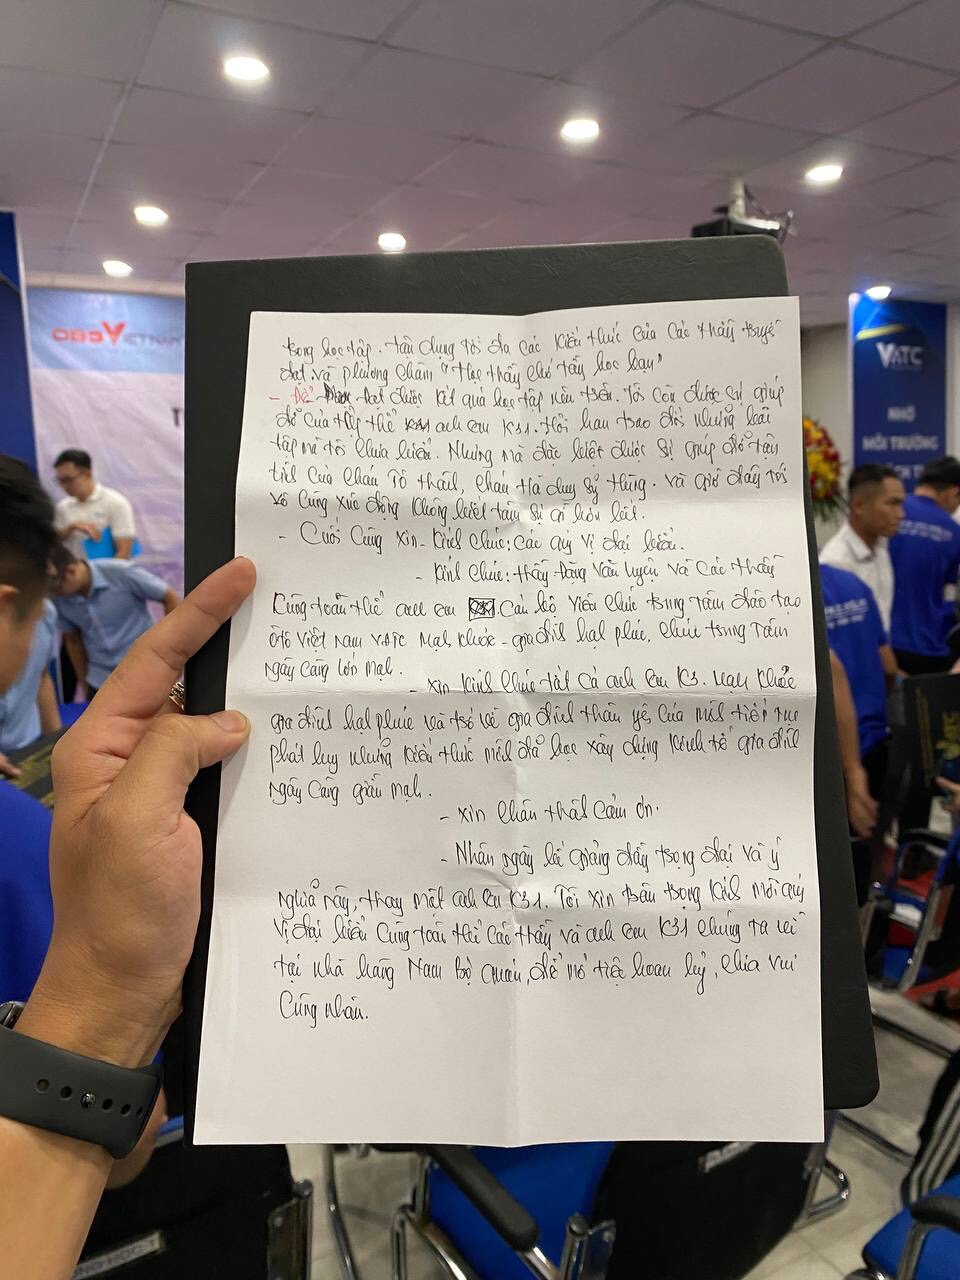 trong học tập. tận dụng tối đa các kiến thức của các thầy truyền
đạt và phương châm "Học thầy chớ tày học bạn"
- Để đạt được kết quả học tập nêu trên. Tôi còn được sự giúp
đỡ của tập thể anh em K31. Hỏi han trao đổi những bài
tập mà tôi chưa hiểu. Nhưng mà đặc biệt được sự giúp đỡ tận
tình của cháu Tô thành, cháu Hà duy Sỹ Hùng. Và giờ đây tôi
vô cùng xúc động không biết tâm sự gì hơn hết.
- Cuối cùng xin - Kính chúc: các quý vị đại biểu.
- Kính chúc: thầy Đặng Văn Luyện và các thầy
Cùng toàn thể anh em Cán bộ viên chức trung tâm đào tạo
ôtô Việt Nam VATC mạnh khoẻ - gia đình hạnh phúc, chúc trung tâm
ngày càng lớn mạnh.
- Xin kính chúc tất cả anh em K31. Mạnh khoẻ
gia đình hạnh phúc và trở về gia đình thân yêu của mình tiếp tục
phát huy những kiến thức mình đã học xây dựng kinh tế gia đình
ngày càng giàu mạnh.
- Xin chân thành cảm ơn.
- Nhân ngày lễ giảng đầy trọng đại và ý
nghĩa này, thay mặt anh em K31. Tôi xin trân trọng kính mời quý
vị đại biểu cùng toàn thể các thầy và anh em K31 chúng ta về
tại nhà hàng Nam Bộ Quán, để mở tiệc hoan hỷ, chia vui
Cùng nhau.
OBD VIETNAM
VATC
NHỜ
MÔI TRƯỜNG